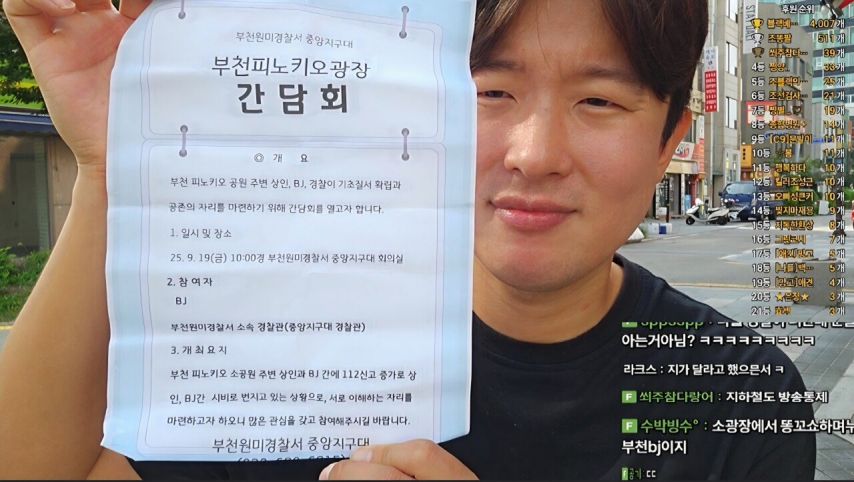 부천원미경찰서 중앙지구대
부천피노키오광장
간담회
◎ 개 요
부천 피노키오 공원 주변 상인, BJ, 경찰이 기초질서 확립과
공존의 자리를 마련하기 위해 간담회를 열고자 합니다.
1. 일시 및 장소
25. 9. 19(금) 10:00경 부천원미경찰서 중앙지구대 회의실
2. 참 여 자
BJ
부천원미경찰서 소속 경찰관(중앙지구대 경찰관)
3. 개 최 요 지
부천 피노키오 소공원 주변 상인과 BJ 간에 112신고 증가로 상
인, BJ간 시비로 번지고 있는 상황으로, 서로 이해하는 자리를
마련하고자 하오니 많은 관심을 갖고 참여해주시길 바랍니다.
부천원미경찰서 중앙지구대
후원 순위
4,007개
조똥팔 511개
39개
4등 33개
5등 25개
6등 21개
7등
8등
9등 11개
10등 11개
11등 행복하다 10개
12등 킬러조성근 10개
13등 10개
14등 9개
15등 8개
16등 7개
17등 5개
18등 5개
19등 4개
20등 3개
21등 3개
아는거아님? ㅋㅋㅋㅋㅋㅋㅋㅋㅋ
라크스 : 지가 달라고 했으면서 ㅋ
F 쐬주참다랑어 : 지하철도 방송통제
F 수박빙수° : 소광장에서 똥꼬쇼하며누
부천bj이지
ㄷㄷ